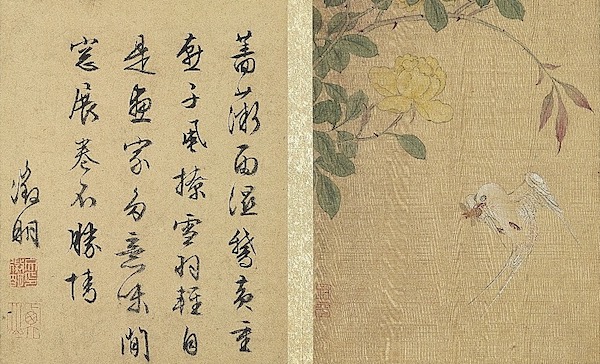 薔薇雨湿鵞黄重
燕子風撩雪羽輕自
是畫家多意味閒
窓展卷不勝情
徵明